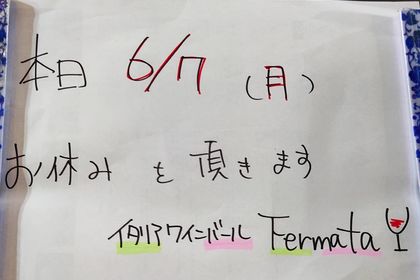 本日 6/7 (月)
お休みを頂きます
イタリアワインバール Fermata